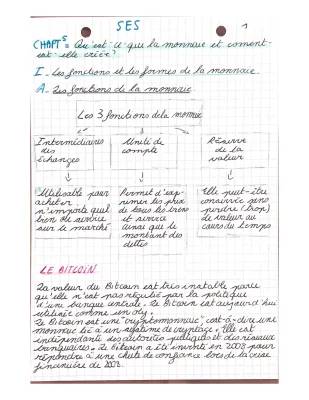 SES
1
CHAPT 5: Qu'est-ce que la monnaie et comment
est-elle créée?
I - Les fonctions et les formes de la monnaie
A - Les fonctions de la monnaie
Les 3 fonctions de la monnaie
Intermédiaires
des
échanges
Unité de
compte
Réserve
de la
valeur
Utilisable pour
acheter
n'importe quel
bien ou service
sur le marché
Permet d'exp-
rimer les prix
de tous les biens
et service
ainsi que le
montant des
dettes
Elle peut-être
conservée sans
perdre (trop)
de valeur au
cours du temps
LE BITCOIN
La valeur du Bitcoin est très instable parce
qu'elle n'est pas régulée par la politique
d'une banque centrale. Le Bitcoin est aujourd'hui
utilisée comme
Le Bitcoin est une "cryptomonnaie", c'est-à-dire une
monnaie liée à un système de cryptage. Elle est
indépendante des autorités publiques et des réseaux
bancaires. Le Bitcoin a été inventé en 2008 pour
répondre à une chute de confiance lors de la crise
financière de 2008.